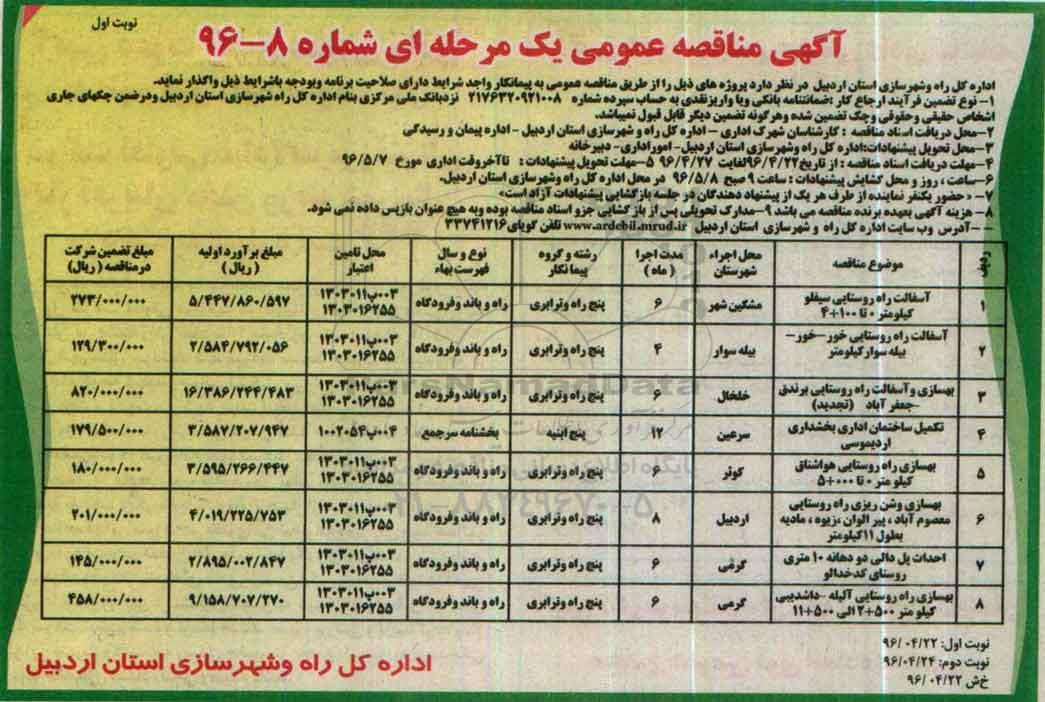 نوبت اول
آگهی مناقصه عمومی یک مرحله ای شماره ۸-۹۶
اداره کل راه وشهرسازی استان اردبیل در نظر دارد پروژه های ذیل را از طریق مناقصه عمومی به پیمانکار واجد شرایط دارای صلاحیت برنامه وبودجه باشرایط ذیل واگذار نماید.
۱- نوع تضمین فرآیند ارجاع کار :ضمانتنامه بانکی ویا واریزنقدی به حساب سپرده شماره ۲۱۷۶۳۲۰۹۲۱۰۰۸ نزدبانک ملی مرکزی بنام اداره کل راه شهرسازی استان اردبیل ودرضمن چکهای جاری
اشخاص حقیقی وحقوقی وچک تضمین شده وهرگونه تضمین دیگر قابل قبول نمیباشد.
۲-محل دریافت اسناد مناقصه : کارشناسان شهرک اداری – اداره کل راه و شهرسازی استان اردبیل - اداره پیمان و رسیدگی
۳-محل تحویل پیشنهادات:اداره کل راه وشهرسازی استان اردبیل- اموراداری- دبیرخانه
۴-مهلت دریافت اسناد مناقصه : از تاریخ ۹۶/۴/۲۲لغایت ۹۶/۴/۲۷ ۵-مهلت تحویل پیشنهادات : تاآخروقت اداری مورخ ۹۶/۵/۷
۶-ساعت ، روز و محل گشایش پیشنهادات : ساعت ۹ صبح ۹۶/۵/۸ در محل اداره کل راه وشهرسازی استان اردبیل.
۷- «حضور یکنفر نماینده از طرف هر یک از پیشنهاد دهندگان در جلسه بازگشایی پیشنهادات آزاد است»
۸- هزینه آگهی بعهده برنده مناقصه می باشد ۹-مدارک تحویلی پس از باز گشایی جزو اسناد مناقصه بوده وبه هیچ عنوان بازپس داده نمی شود.
--آدرس وب سایت اداره کل راه و شهرسازی استان اردبیل www.ardebil.mrud.ir تلفن گویای ۳۳۷۴۱۲۱۶
ردیف موضوع مناقصه محل اجراء شهرستان مدت اجرا ( ماه ) رشته و گروه پیمانکار نوع و سال فهرست بهاء محل تامین اعتبار مبلغ برآورد اولیه ( ریال ) مبلغ تضمین شرکت درمناقصه ( ریال)
۱ آسفالت راه روستایی سیفلو کیلومتر ۰ تا ۱۰۰+۴ مشگین شهر ۶ پنج راه وترابری راه و باند وفرودگاه ۰۰۳پ۱۳۰۳۰۱۱ ۱۳۰۳۰۱۶۲۵۵ ۵/۴۴۷/۸۶۰/۵۹۷ ۲۷۳/۰۰۰/۰۰۰
۲ آسفالت راه روستایی خور–خور– بیله سوارکیلومتر بیله سوار ۴ پنج راه وترابری راه و باند وفرودگاه ۰۰۳پ۱۳۰۳۰۱۱ ۱۳۰۳۰۱۶۲۵۵ ۲/۵۸۴/۷۹۲/۰۵۶ ۱۲۹/۳۰۰/۰۰۰
۳ بهسازی وآسفالت راه روستایی برندق -جعفر آباد (تجدید) خلخال ۶ پنج راه وترابری راه و باند وفرودگاه ۰۰۳پ۱۳۰۳۰۱۱ ۱۳۰۳۰۱۶۲۵۵ ۱۶/۳۸۶/۲۴۴/۴۸۳ ۸۲۰/۰۰۰/۰۰۰
۴ تکمیل ساختمان اداری بخشداری اردیموسی سرعین ۱۲ پنج ابنیه بخشنامه سرجمع ۰۰۴پ۱۰۰۲۰۵۴ ۳/۵۸۷/۲۰۷/۹۴۷ ۱۷۹/۵۰۰/۰۰۰
۵ بهسازی راه روستایی هواشناق کیلو متر ۰ تا ۰۰۰+۵ کوثر ۶ پنج راه وترابری راه و باند وفرودگاه ۰۰۳پ۱۳۰۳۰۱۱ ۱۳۰۳۰۱۶۲۵۵ ۳/۵۹۵/۲۶۶/۴۴۷ ۱۸۰/۰۰۰/۰۰۰
۶ بهسازی وشن ریزی راه روستایی معصوم آباد ، پیر الوان ،زیوه ، مادیه بطول ۱۱کیلومتر اردبیل ۸ پنج راه وترابری راه و باند وفرودگاه ۰۰۳پ۱۳۰۳۰۱۱ ۱۳۰۳۰۱۶۲۵۵ ۴/۰۱۹/۲۲۵/۷۵۳ ۲۰۱/۰۰۰/۰۰۰
۷ احداث پل دالی دو دهانه ۱۰ متری روستای کدخدالو گرمی ۶ پنج راه وترابری راه و باند وفرودگاه ۰۰۳پ۱۳۰۳۰۱۱ ۱۳۰۳۰۱۶۲۵۵ ۲/۸۹۵/۰۰۲/۸۴۷ ۱۴۵/۰۰۰/۰۰۰
۸ بهسازی راه روستایی آلیله -داشدیبی کیلو متر ۵۰۰+۲ الی ۵۰۰+۱۱ گرمی ۶ پنج راه وترابری راه و باند وفرودگاه ۰۰۳پ۱۳۰۳۰۱۱ ۱۳۰۳۰۱۶۲۵۵ ۹/۱۵۸/۷۰۷/۲۷۰ ۴۵۸/۰۰۰/۰۰۰
نوبت اول: ۹۶/۰۴/۲۲
نوبت دوم: ۹۶/۰۴/۲۴
خ ش ۹۶/۰۴/۲۲
اداره کل راه وشهرسازی استان اردبیل
ParsNamadData
۰۲۱-۸۸۳۴۹۶۷۰-۵